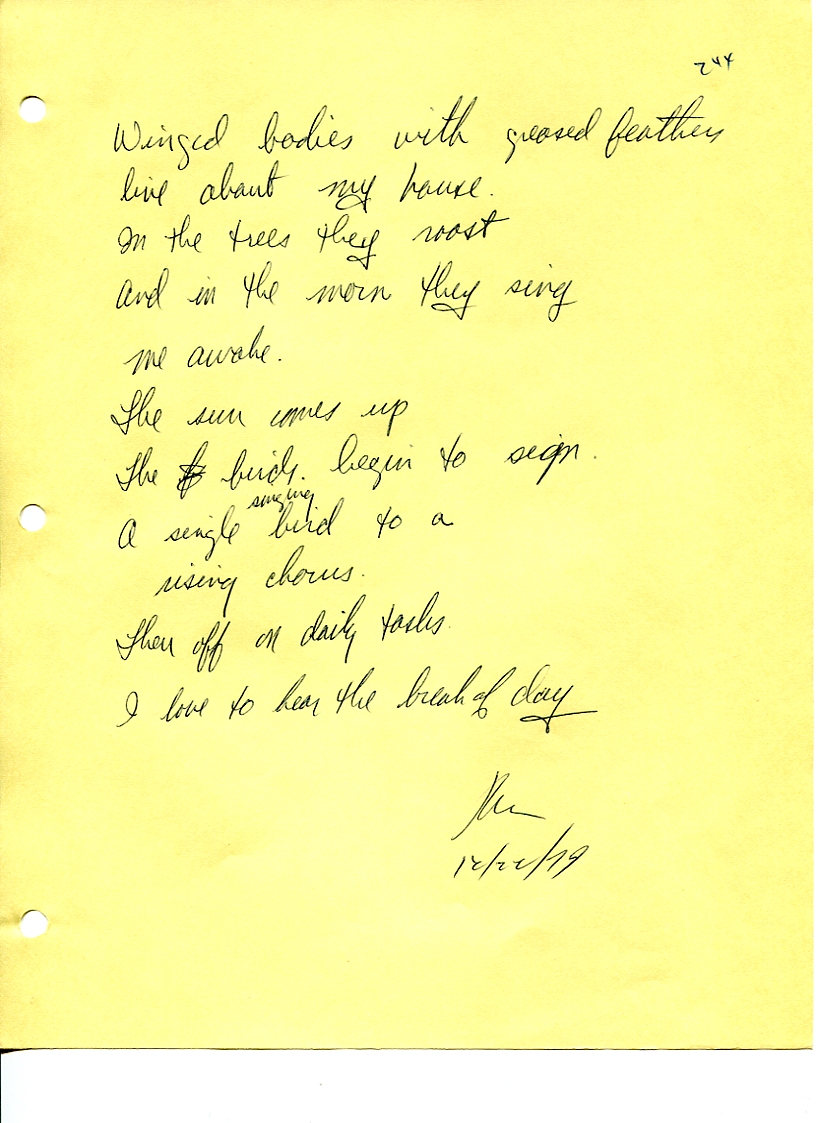 244
Winged bodies with greased feathers
live about my house.
In the trees they roost
And in the morn they sing
me awake.
The sun comes up
The birds. begin to sign.
singing
A single bird to a
rising chorus.
Then off on daily tasks.
I love to hear the break of day
12/22/79